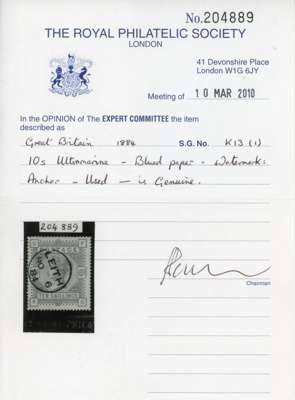 No. 204889
THE ROYAL PHILATELIC SOCIETY
LONDON
41 Devonshire Place
London W1G 6JY
Meeting of 10 MAR 2010
In the OPINION of The EXPERT COMMITTEE the item
described as
Great Britain 1884 S.G. No. K13 (1)
10s Ultramarine - Blued paper - Watermark:
Anchor - Used - is Genuine.
204 889
LEITH
NO 6
84
TEN SHILLINGS
Chairman